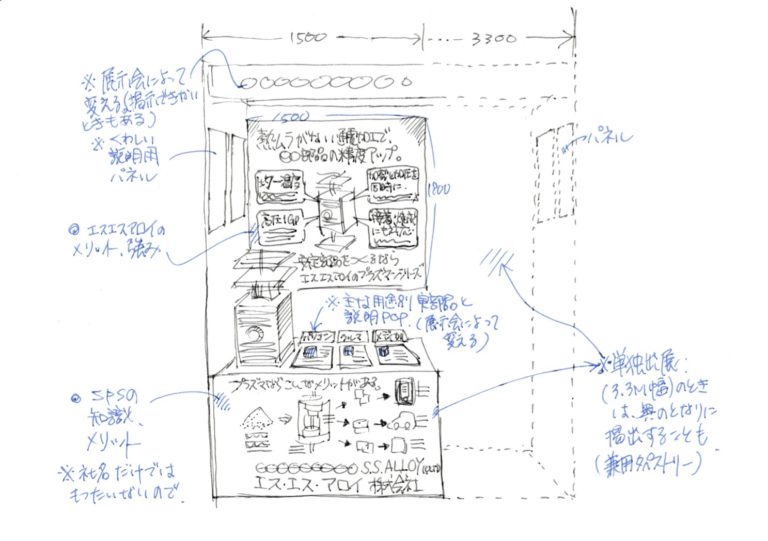 1500
3300
※展示会によって
変える(掲示できない
ときもある)
※くわしい
説明用
パネル
パネル
1500
1800
熱ムラがない 加工で、
部品の精度アップ。
◎エスエスアロイの
メリット、強み
エスエスアロイのプラズマンシリーズ
※主な用途別 実部品と
説明POP (展示会によって
変える)
パソコン
クルマ
プラズマならこんなメリットがある。
◎SPSの
知識、
メリット
※社名だけでは
もったいないので
※単独出展:
(3.3M幅)のとき
は、奥のとなりに
掲出することも
(兼用タペストリー)
S.S.ALLOY
エス・エス・アロイ 株式会社